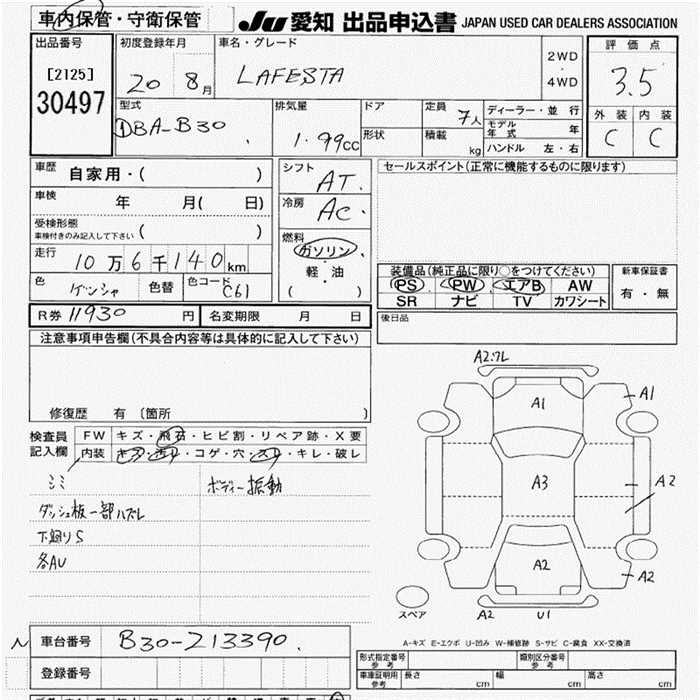 車内保管・守衛保管
JU 愛知 出品申込書 JAPAN USED CAR DEALERS ASSOCIATION
出品番号
[2125]
30497
初度登録年月
20 8月
車名・グレード
LAFESTA
2WD
・
4WD
評価点
3.5
外装 内装
C C
型式
DBA-B30
排気量
1.99cc
ドア
形状
定員 7人
積載 kg
ディーラー・並行
モデル年式 年
ハンドル 左・右
車歴 自家用・( )
車検 年 月( 日)
受検形態
車検付きのみ記入して下さい ( )
走行 10万6千140km
色 ゲンシャ 色替 色コード C61
シフト AT.
冷房 AC.
燃料
ガソリン
軽・油
( )
セールスポイント(正常に機能するものに限ります)
装備品(純正品に限り○をつけてください)
PS PW エアB AW
SR ナビ TV カワシート
新車保証書
有・無
R券 11930円 名変期限 月 日
後日品
注意事項申告欄(不具合内容等は具体的に記入して下さい)
修復歴 有〔箇所 〕
検査員
記入欄
FW キズ・飛石・ヒビ割・リペア跡・X要
内装 キズ・汚れ・コゲ・穴・スレ・キレ・破レ
ミミ
ダッシュ板一部ハズレ
下廻りS
各AU
ボディー振動
A2:フレ
A1
A1
A3
A2
A2
A2
A2 U1
スペア
A-キズ E-エクボ U-凹み W-補修跡 S-サビ C-腐食 XX-交換済
N 車台番号 B30-213390.
登録番号
形式指定番号
参考
類別区分番号
参考
車庫証明用
参考
長さ cm 幅 cm 高さ cm